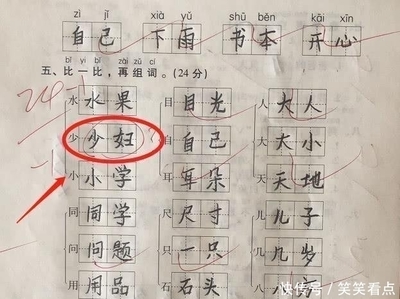 zì jǐ xià yǔ shū běn kāi xīn
自己 下雨 书本 开心
bǐ yī bǐ zài zǔ cí
五、比一比，再组词。(24分)
24
水 水果 目 目光 人 大人
少 少妇 自 自己 大 大小
-1
小 小学 耳 耳朵 天 天地
同 同学 尺 尺寸 儿 儿子
问 问题 只 一只 几 几岁
用 用品 石 石头 八
快传号/笑笑看点